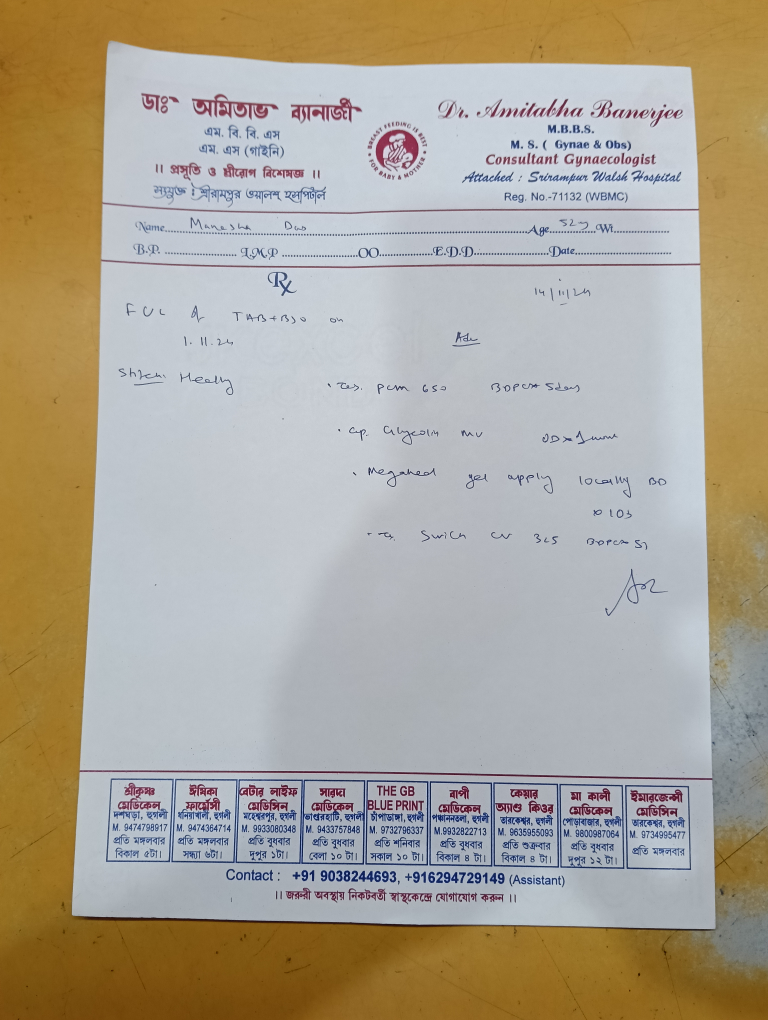 ডাঃ অমিতাভ ব্যানার্জী
এম. বি. বি. এস
এম. এস (গাইনি)
।। প্রসূতি ও স্ত্রীরোগ বিশেষজ্ঞ ।।
সংযুক্ত : শ্রীরামপুর ওয়ালশ্ হসপিটাল
BREAST FEEDING IS BEST
FOR BABY & MOTHER
Dr. Amitabha Banerjee
M.B.B.S.
M. S. ( Gynae & Obs)
Consultant Gynaecologist
Attached : Srirampur Walsh Hospital
Reg. No.-71132 (WBMC)
Name Manasha Das Age 52y Wt.
B.P. L.M.P OO E.D.D. Date
Rx
14/11/24
F U C of TAH+BSO on
1.11.24
Adv
Stitch Healthy
Tab. PCM 650 BDPC x 5days
Cap. Glycolin MV OD x 1 month
Megaheal gel apply locally BD
x 10d
CV 325 BDPC x 5d
শ্রীকৃষ্ণ মেডিকেল
দশঘড়া, হুগলী
M. 9474798917
প্রতি মঙ্গলবার
বিকাল ৫টা।
ঈশিকা ফার্মেসী
ধনিয়াখালী, হুগলী
M. 9474364714
প্রতি মঙ্গলবার
সন্ধ্যা ৬টা।
বেটার লাইফ মেডিসিন
মহেশ্বরপুর, হুগলী
M. 9933080348
প্রতি বুধবার
দুপুর ১টা।
সারদা মেডিকেল
ভাণ্ডারহাটি, হুগলী
M. 9433757848
প্রতি বুধবার
বেলা ১০ টা।
THE GB BLUE PRINT
চাঁপাডাঙ্গা, হুগলী
M. 9732796337
প্রতি শনিবার
সকাল ১০ টা।
বাপী মেডিকেল
পঞ্চাননতলা, হুগলী
M.9932822713
প্রতি বুধবার
বিকাল ৪ টা।
কেয়ার অ্যাণ্ড কিওর
তারকেশ্বর, হুগলী
M. 9635955093
প্রতি শুক্রবার
বিকাল ৪ টা।
মা কালী মেডিকেল
পোড়াবাজার, হুগলী
M. 9800987064
প্রতি বুধবার
দুপুর ১২ টা।
ইমারজেন্সী মেডিসিন
তারকেশ্বর, হুগলী
M. 9734995477
প্রতি মঙ্গলবার
Contact : +91 9038244693, +916294729149 (Assistant)
।। জরুরী অবস্থায় নিকটবর্তী স্বাস্থ্যকেন্দ্রে যোগাযোগ করুন ।।